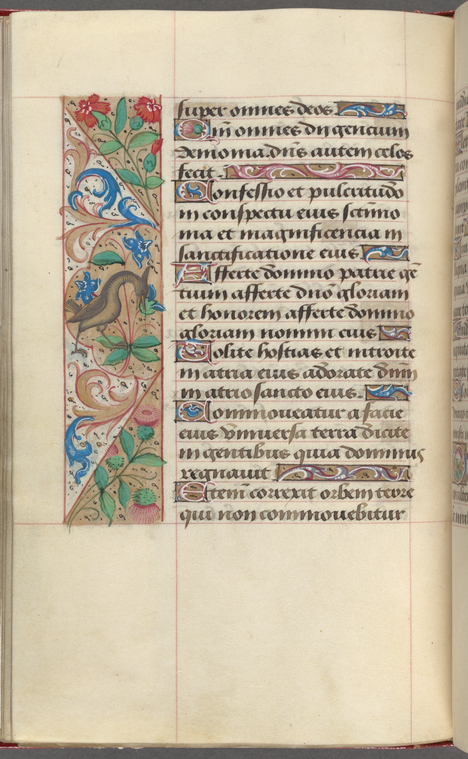 super omnes deos.
Qm̄ omnes dii gencium
demonia. dn̄s autem celos
fecit.
Confessio et pulcritudo
in conspectu eius sctimo
nia et magnificencia in
sanctificatione eius
Afferte domino patrie gē
tium afferte dn̄o gloriam
et honorem afferte domino
gloriam nomini eius
Tolite hostias et introite
in atria eius adorate dn̄m
in atrio sancto eius.
Commoueatur a facie
eius vniuersa terra dicite
in gentibus quia dominus
regnauit
Etenī correxit orbem terre
qui non commouebitur